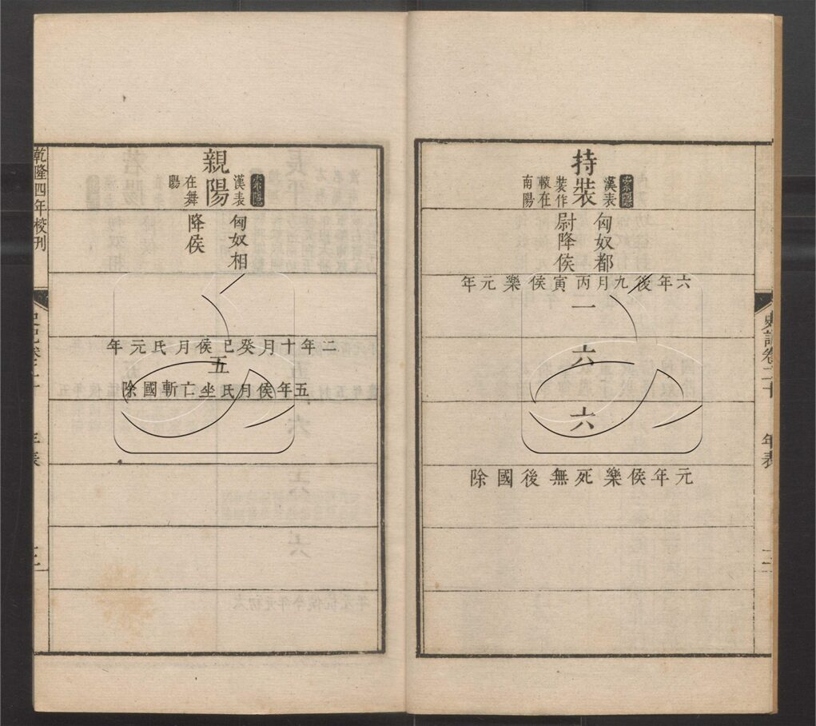 史記卷二十
年表
持裝
索隱
漢表
裝作
轅在
南陽
匈奴都
尉降侯
六年後九月丙寅侯樂元年
一
六
六
元年侯樂死無後國除
親陽
索隱
漢表
在舞
陽
匈奴相
降侯
二年十月癸巳侯月氏元年
五
五年侯月氏坐亡斬國除
乾隆四年校刊
年表